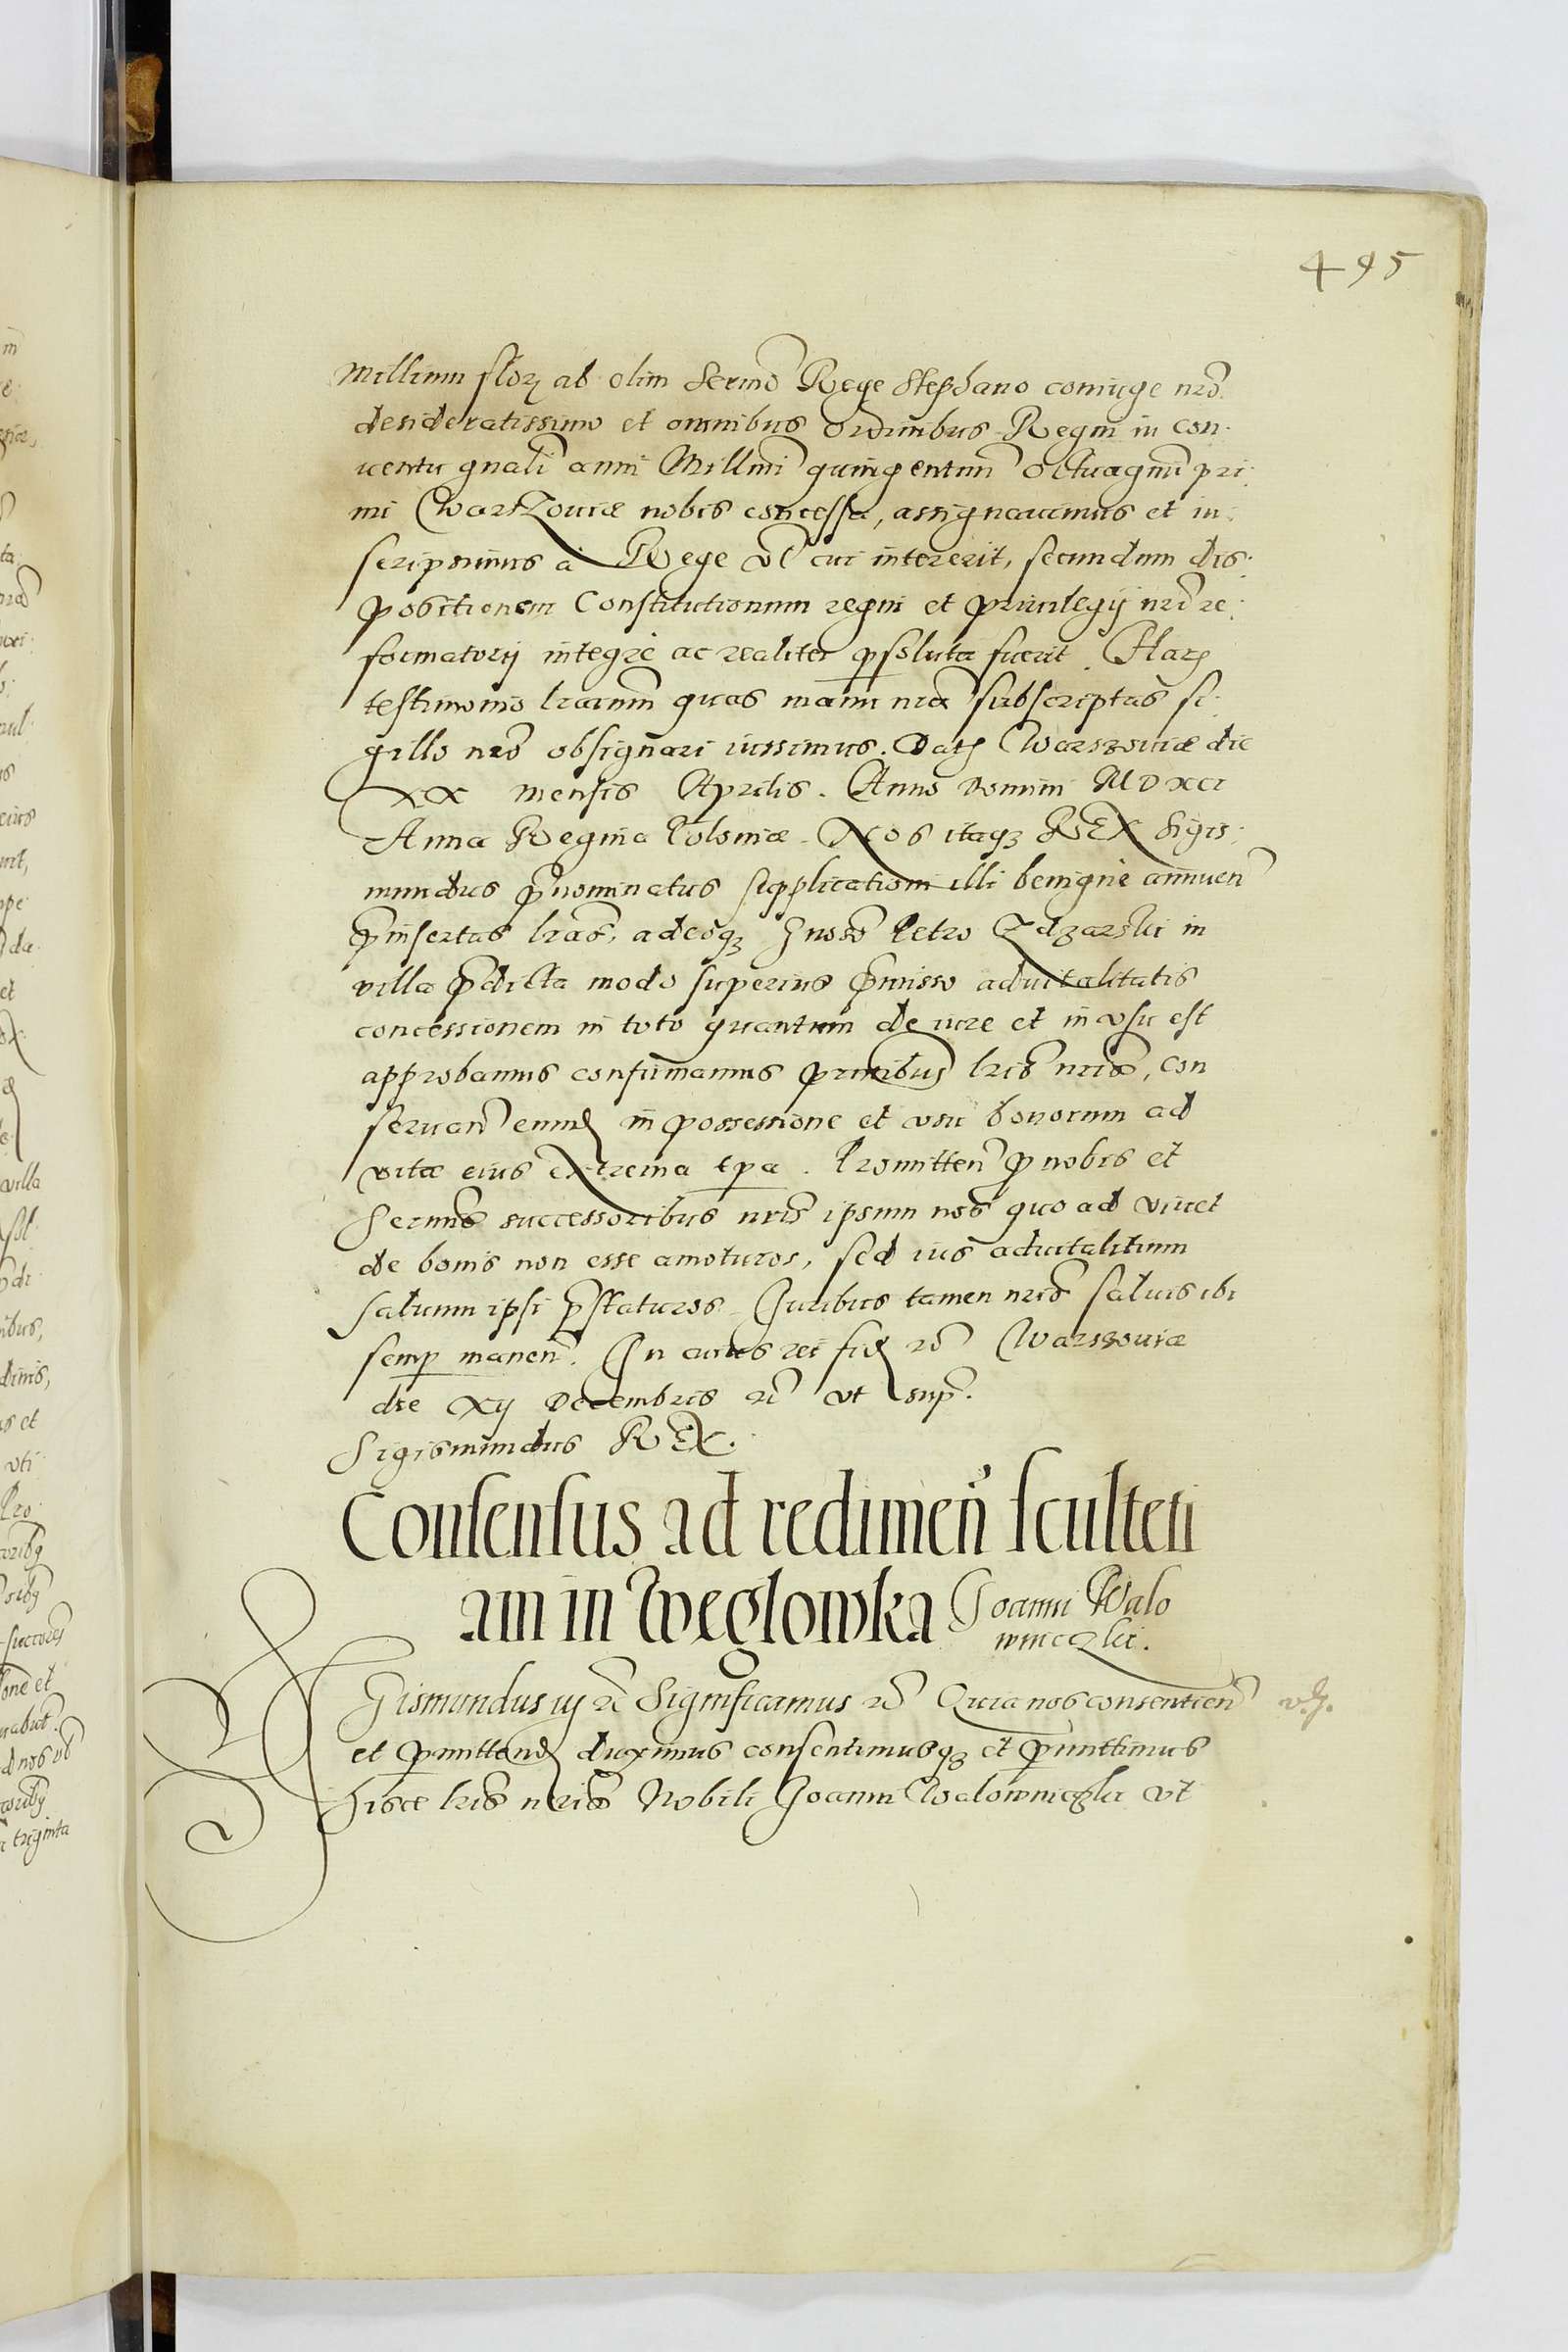 495
Millium flor ab olim Sermo Rege Stephano coniuge nro
desideratissimo et omnibus ordinibus Regni in con
uentu gnali anni Millmi quingentmi octuagmi pri
mi Warszouiæ nobis concessa, assignauimus et in
scripsimus à Rege vl cui intererit, secundum dis
positionem Constitutionum regni et priuilegij nri re
formatorij integrè ac realiter psoluta fuerit. Har
testimonio lrarum quas manu nra subscriptas si
gillo nro obsignari iussimus. Dat Warszouiæ die
XX mensis Aprilis. Anno Domini MDXCI
Anna Regina Poloniæ. Nos itaq REX Sigis
mundus pnominatus supplicationi illi benignè annuen
pinsertas lras, adeoq Gnoso Petro Zdzarski in
villa pdicta modo superius pmisso aduitalitatis
concessionem in toto quantum de iure et in vsu est
approbamus confirmamus pntibus lris nris, con
seruan eund in possessione et vsu bonorum ad
vitæ eius extrema tpa. Promitten p nobis et
Sermis successoribus nris ipsum nos quo ad viuet
de bonis non esse amoturos, sed ius aduitalitium
saluum ipsi pstaturos Iuribus tamen nris saluis ibi
semp manen. In cuius rei fid rc Warszouiæ
die xij Decembris rc vt sup.
Sigismundus REX.
Consensus ad redimen sculteti
am in Weglowka Joanni Walo
wniczki.
Sigismundus iij rc Significamus rc Quia nos consentien
et pmittend duximus consentimusq et pmittimus
hisce lris nris Nobili Joanni Walowniczki vt